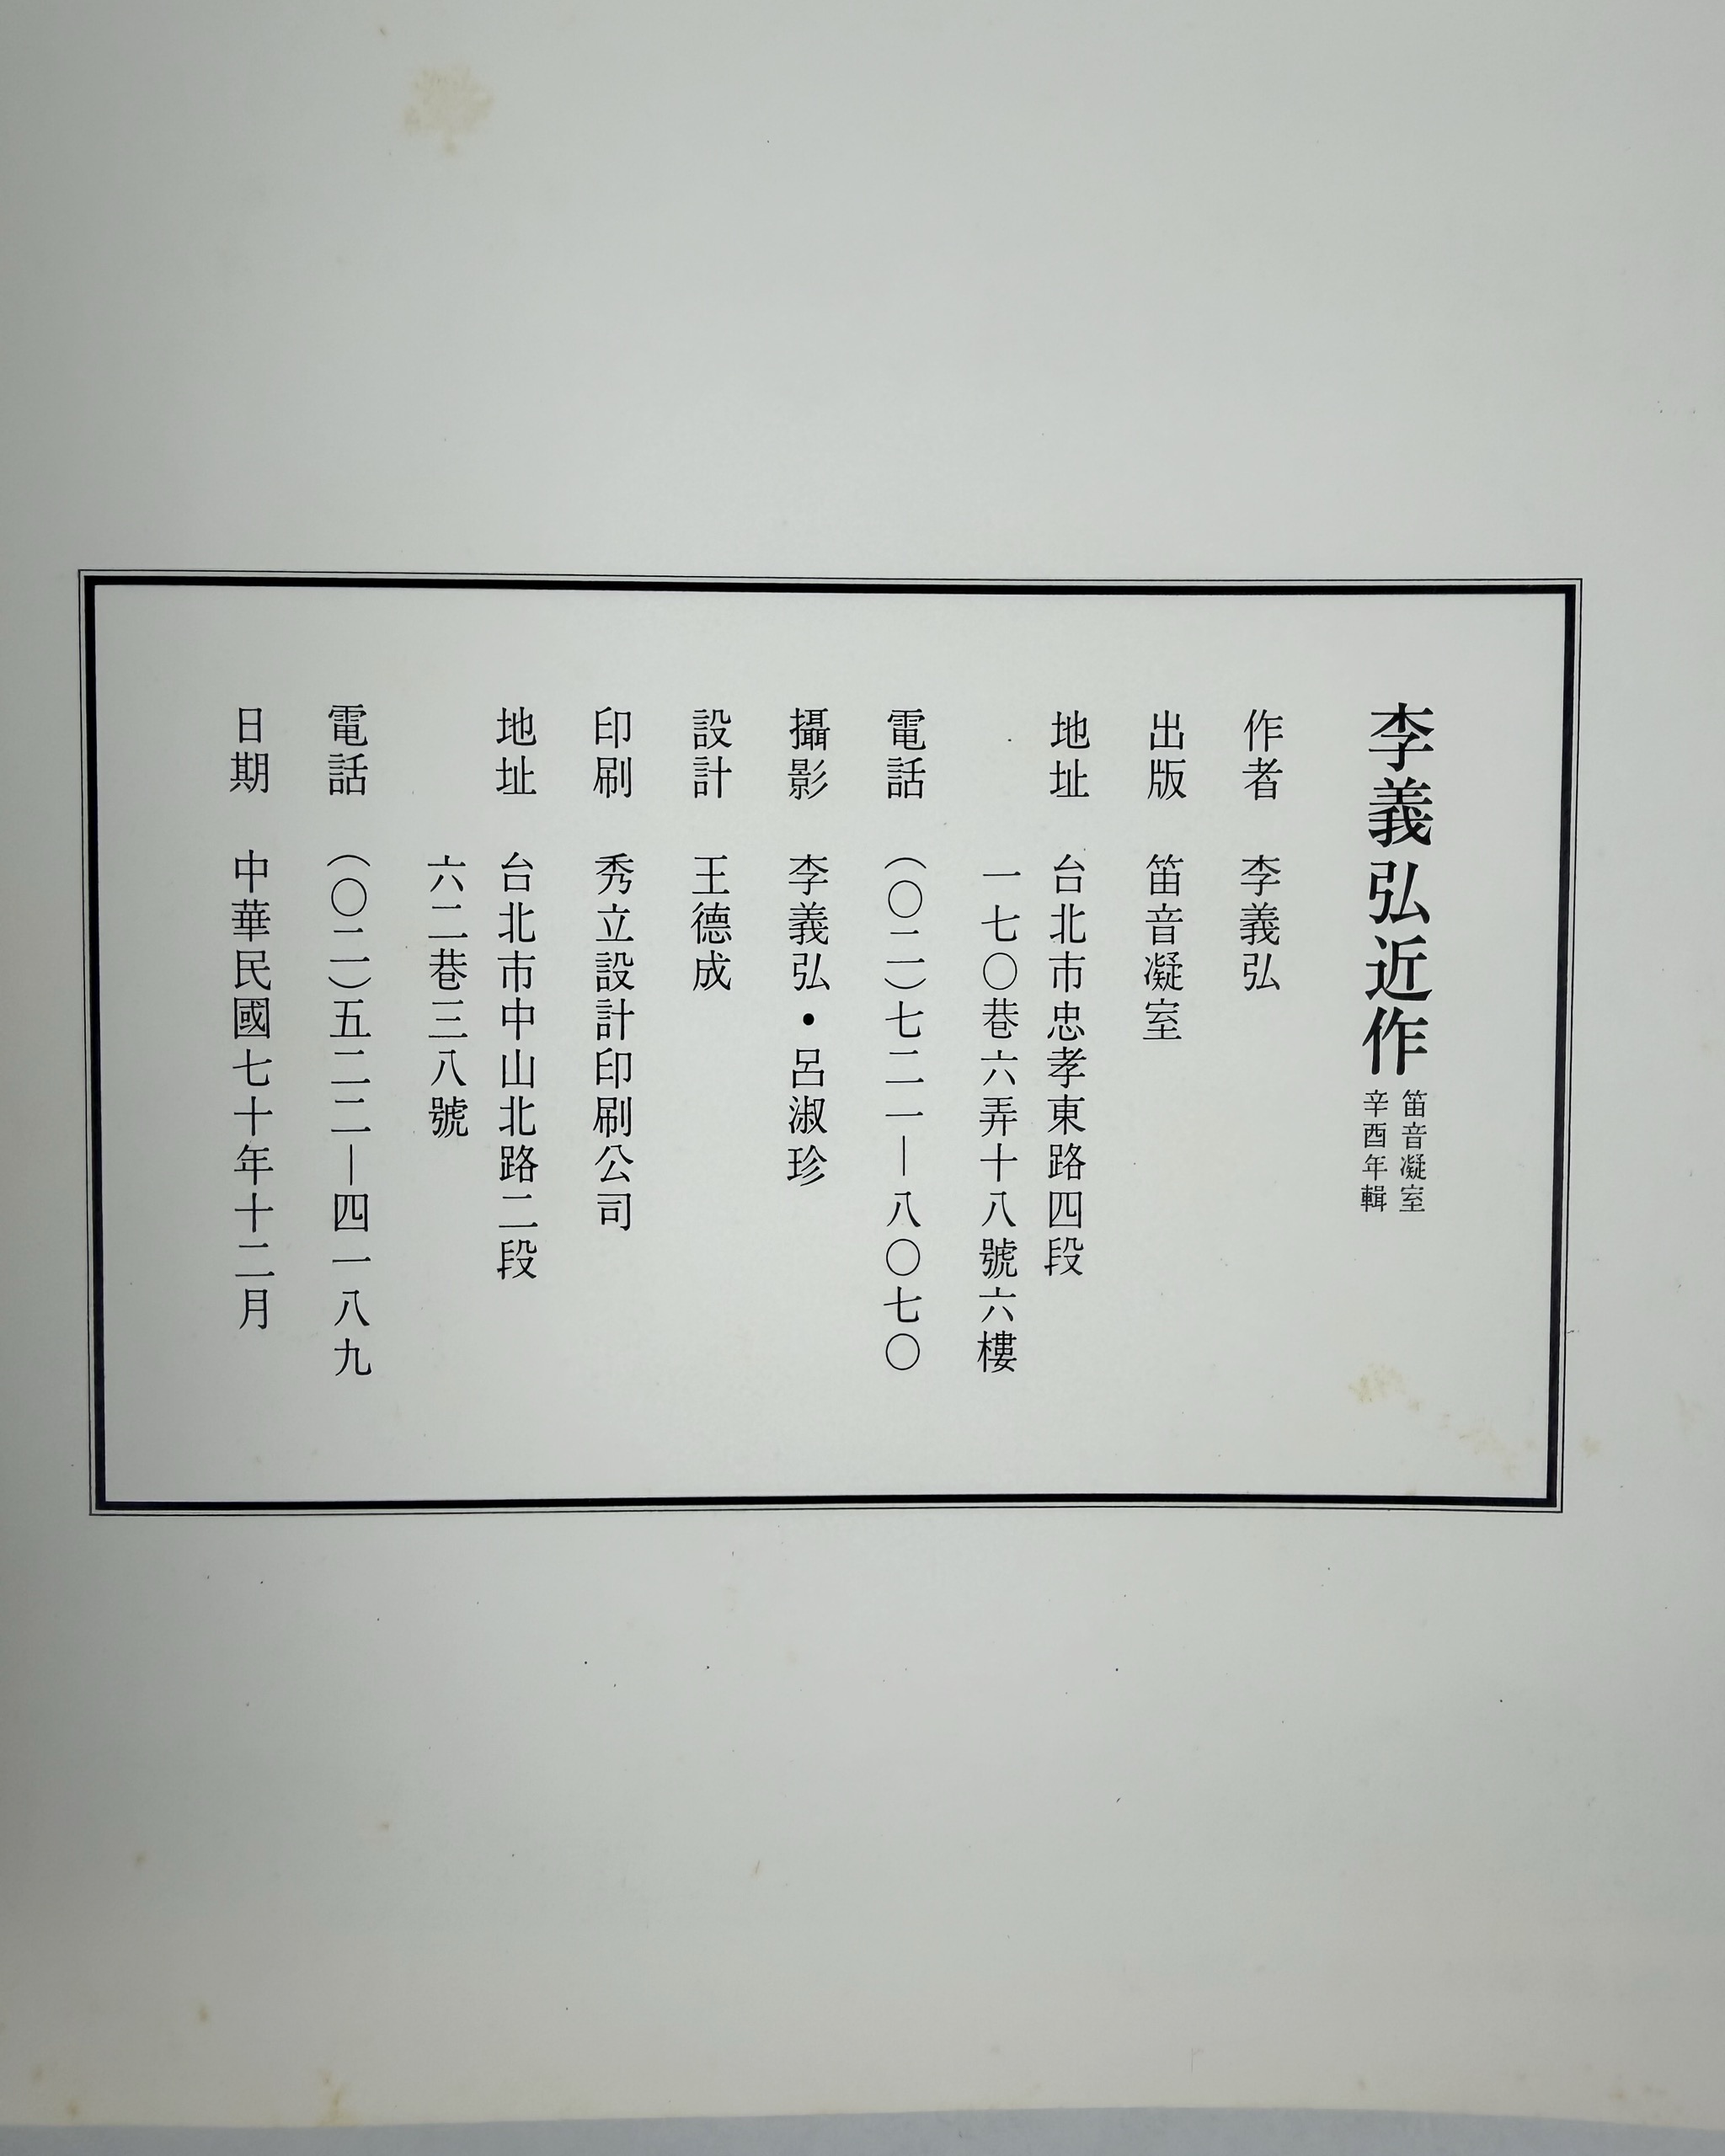 李義弘近作
笛音凝室
辛酉年輯
作者 李義弘
出版 笛音凝室
地址 台北市忠孝東路四段
一七〇巷六弄十八號六樓
電話 (〇二)七二一—八〇七〇
攝影 李義弘•呂淑珍
設計 王德成
印刷 秀立設計印刷公司
地址 台北市中山北路二段
六二巷三八號
電話 (〇二)五二二—四一八九
日期 中華民國七十年十二月